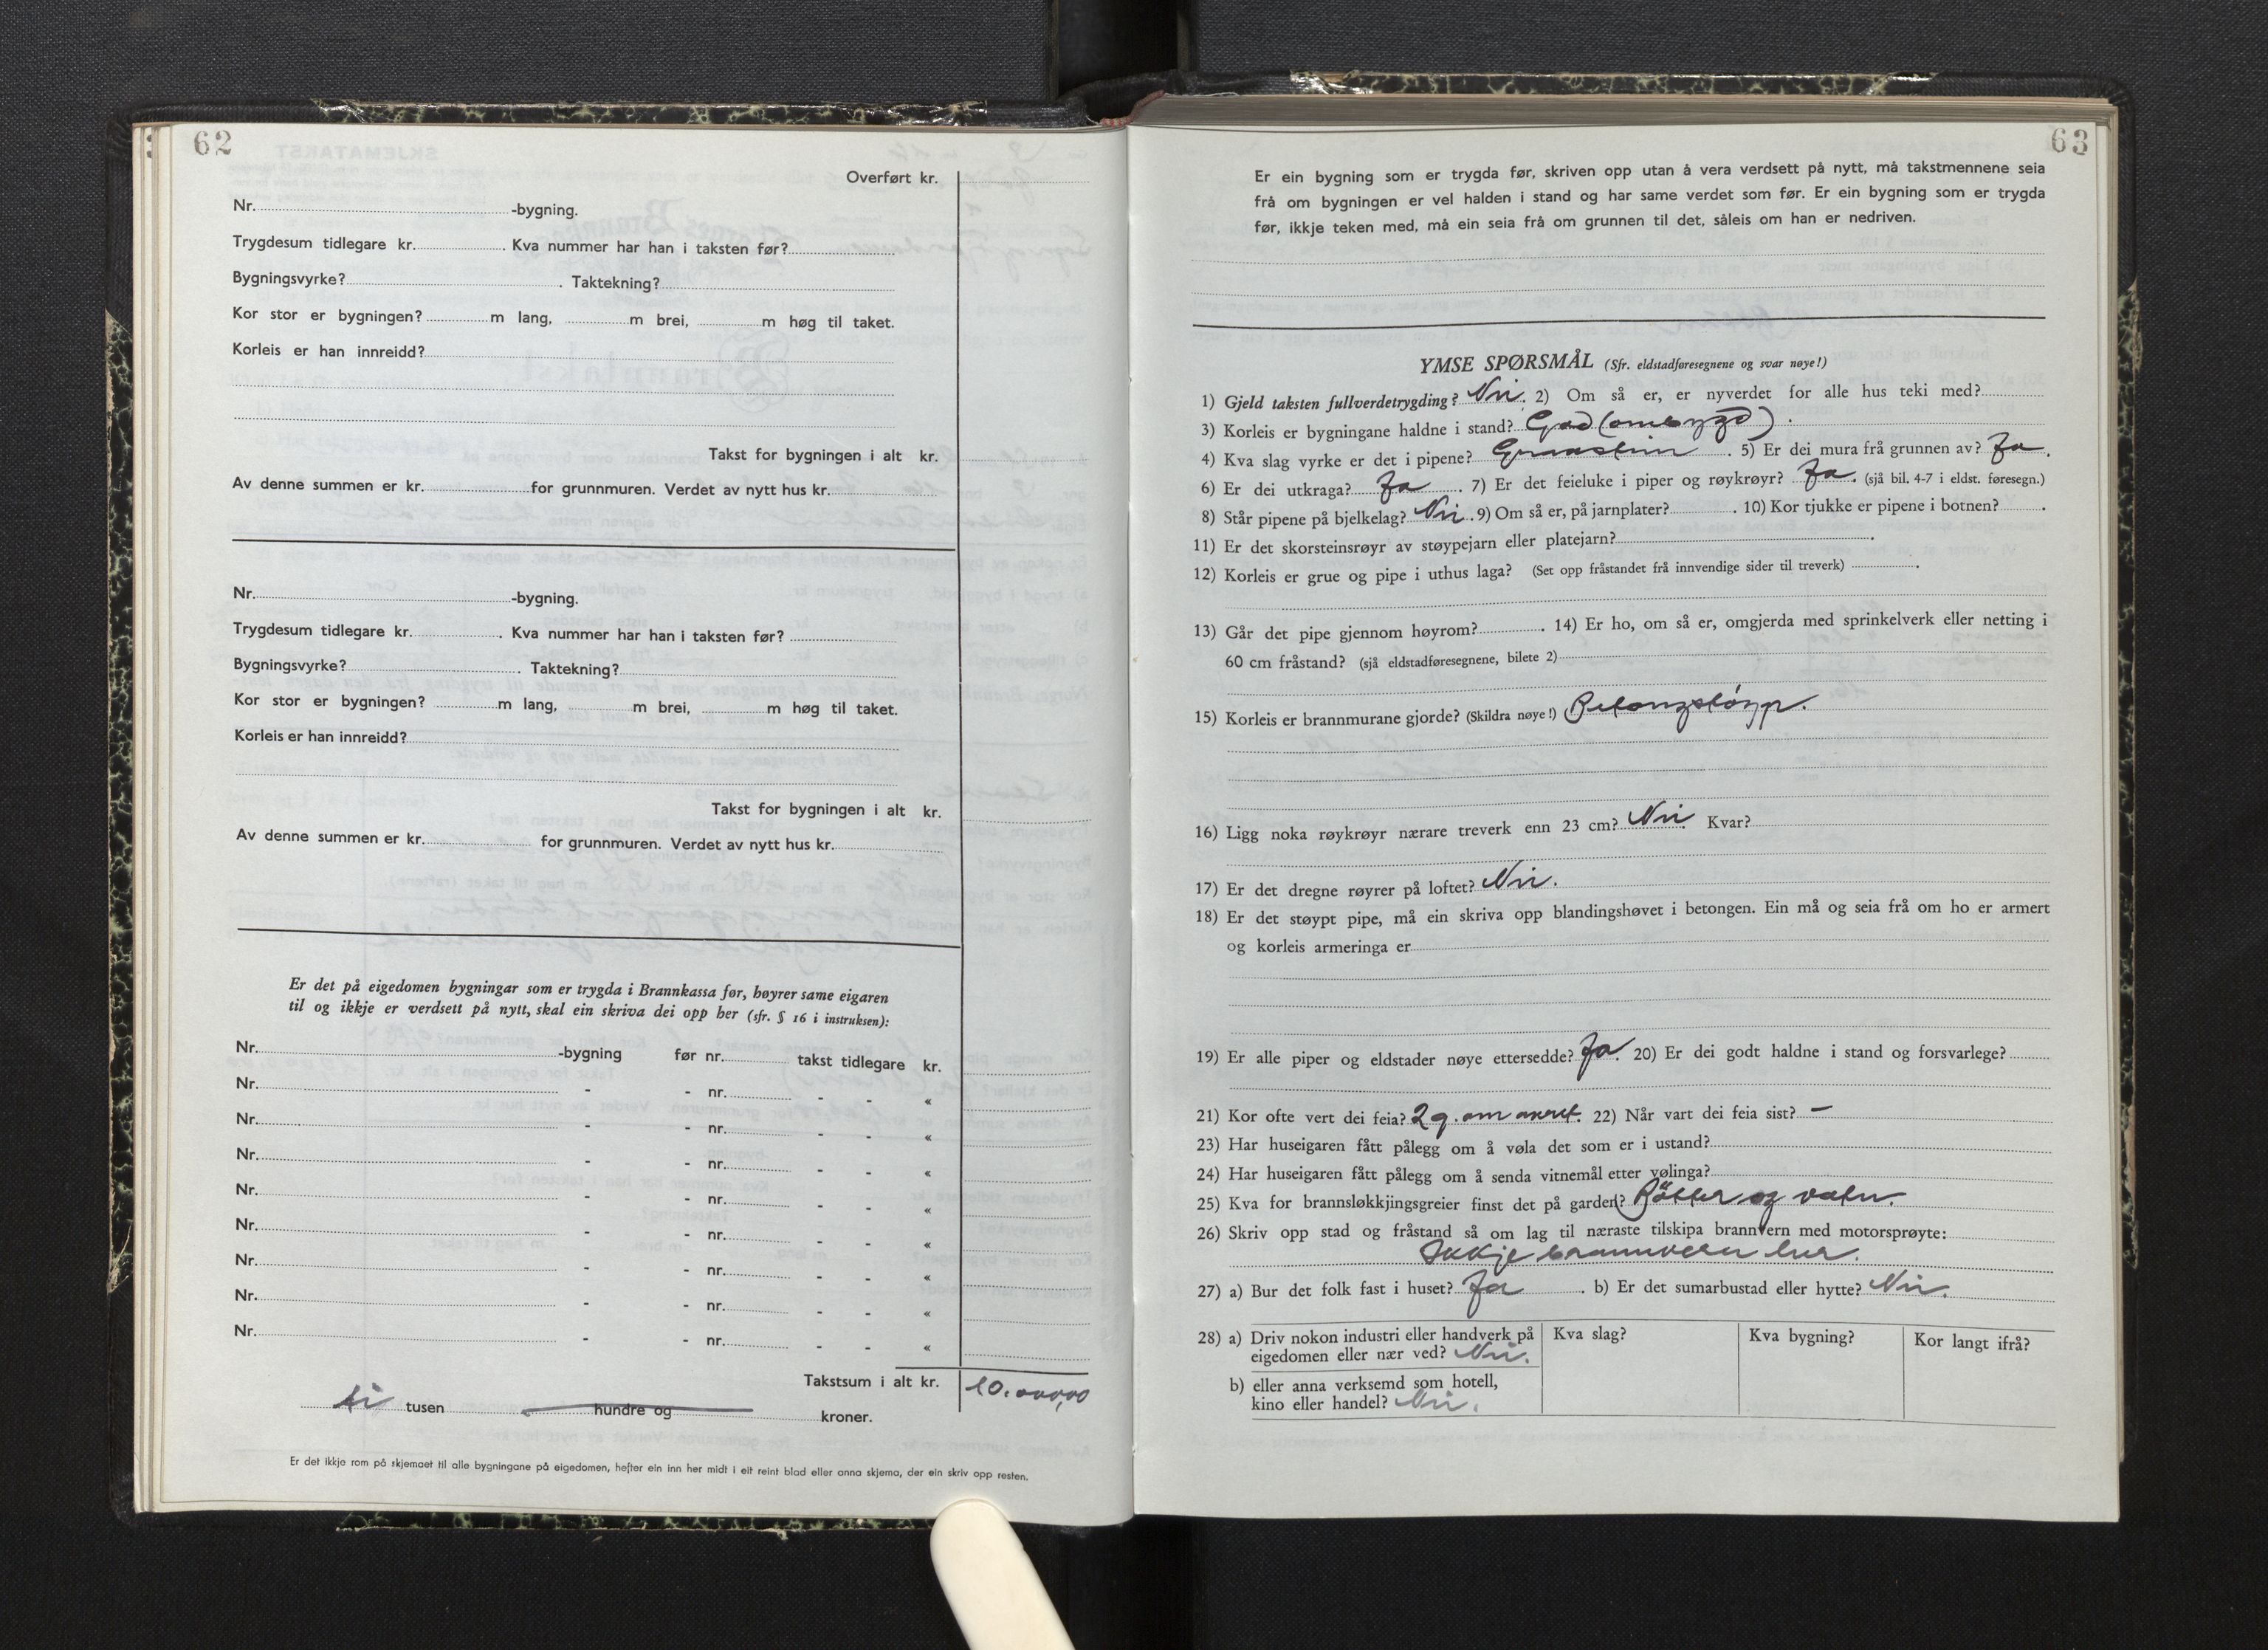 62
Overført kr.
Nr. -bygning.
Trygdesum tidlegare kr. . Kva nummer har han i taksten før?
Bygningsvyrke? . Taktekning?
Kor stor er bygningen? m lang, m brei, m høg til taket.
Korleis er han innreidd?
Takst for bygningen i alt kr.
Av denne summen er kr. for grunnmuren. Verdet av nytt hus kr.
Nr. -bygning.
Trygdesum tidlegare kr. . Kva nummer har han i taksten før?
Bygningsvyrke? . Taktekning?
Kor stor er bygningen? m lang, m brei, m høg til taket.
Korleis er han innreidd?
Takst for bygningen i alt kr.
Av denne summen er kr. for grunnmuren. Verdet av nytt hus kr.
Er det på eigedomen bygningar som er trygda i Brannkassa før, høyrer same eigaren
til og ikkje er verdsett på nytt, skal ein skriva dei opp her (sfr. § 16 i instruksen):
Nr. -bygning før nr. takst tidlegare kr.
Nr. - - nr. - - «
Nr. - - nr. - - «
Nr. - - nr. - - «
Nr. - - nr. - - «
Nr. - - nr. - - «
Nr. - - nr. - - «
Nr. - - nr. - - «
Nr. - - nr. - - «
Takstsum i alt kr. 10.000,00
ti tusen hundre og kroner.
Er det ikkje rom på skjemaet til alle bygningane på eigedomen, hefter ein inn her midt i eit reint blad eller anna skjema, der ein skriv opp resten.
63
Er ein bygning som er trygda før, skriven opp utan å vera verdsett på nytt, må takstmennene seia
frå om bygningen er vel halden i stand og har same verdet som før. Er ein bygning som er trygda
før, ikkje teken med, må ein seia frå om grunnen til det, såleis om han er nedriven.
YMSE SPØRSMÅL (Sfr. eldstadføresegnene og svar nøye!)
1) Gjeld taksten fullverdetrygding? Nei. 2) Om så er, er nyverdet for alle hus teki med?
3) Korleis er bygningane haldne i stand? God (ombygd).
4) Kva slag vyrke er det i pipene? Graastein. 5) Er dei mura frå grunnen av? Ja.
6) Er dei utkraga? Ja. 7) Er det feieluke i piper og røykrøyr? Ja. (sjå bil. 4-7 i eldst. føresegn.)
8) Står pipene på bjelkelag? Nei. 9) Om så er, på jarnplater? . 10) Kor tjukke er pipene i botnen? .
11) Er det skorsteinsrøyr av støypejarn eller platejarn? .
12) Korleis er grue og pipe i uthus laga? (Set opp fråstandet frå innvendige sider til treverk) .
13) Går det pipe gjennom høyrom? . 14) Er ho, om så er, omgjerda med sprinkelverk eller netting i
60 cm fråstand? (sjå eldstadføresegnene, bilete 2)
15) Korleis er brannmurane gjorde? (Skildra nøye!) Betongstøyp.
16) Ligg noka røykrøyr nærare treverk enn 23 cm? Nei. Kvar?
17) Er det dregne røyrer på loftet? Nei.
18) Er det støypt pipe, må ein skriva opp blandingshøvet i betongen. Ein må og seia frå om ho er armert
og korleis armeringa er
19) Er alle piper og eldstader nøye ettersedde? Ja. 20) Er dei godt haldne i stand og forsvarlege?
21) Kor ofte vert dei feia? 2 g. om aaret. 22) Når vart dei feia sist? –
23) Har huseigaren fått pålegg om å vøla det som er i ustand?
24) Har huseigaren fått pålegg om å senda vitnemål etter vølinga?
25) Kva for brannsløkkjingsgreier finst det på garden? Bötter og vatn.
26) Skriv opp stad og fråstand så om lag til næraste tilskipa brannvern med motorsprøyte:
Ikkje brannvern her.
27) a) Bur det folk fast i huset? Ja . b) Er det sumarbustad eller hytte? Nei.
28) a) Driv nokon industri eller handverk på
eigedomen eller nær ved? Nei.
Kva slag? Kva bygning? Kor langt ifrå?
b) eller anna verksemd som hotell,
kino eller handel? Nei.